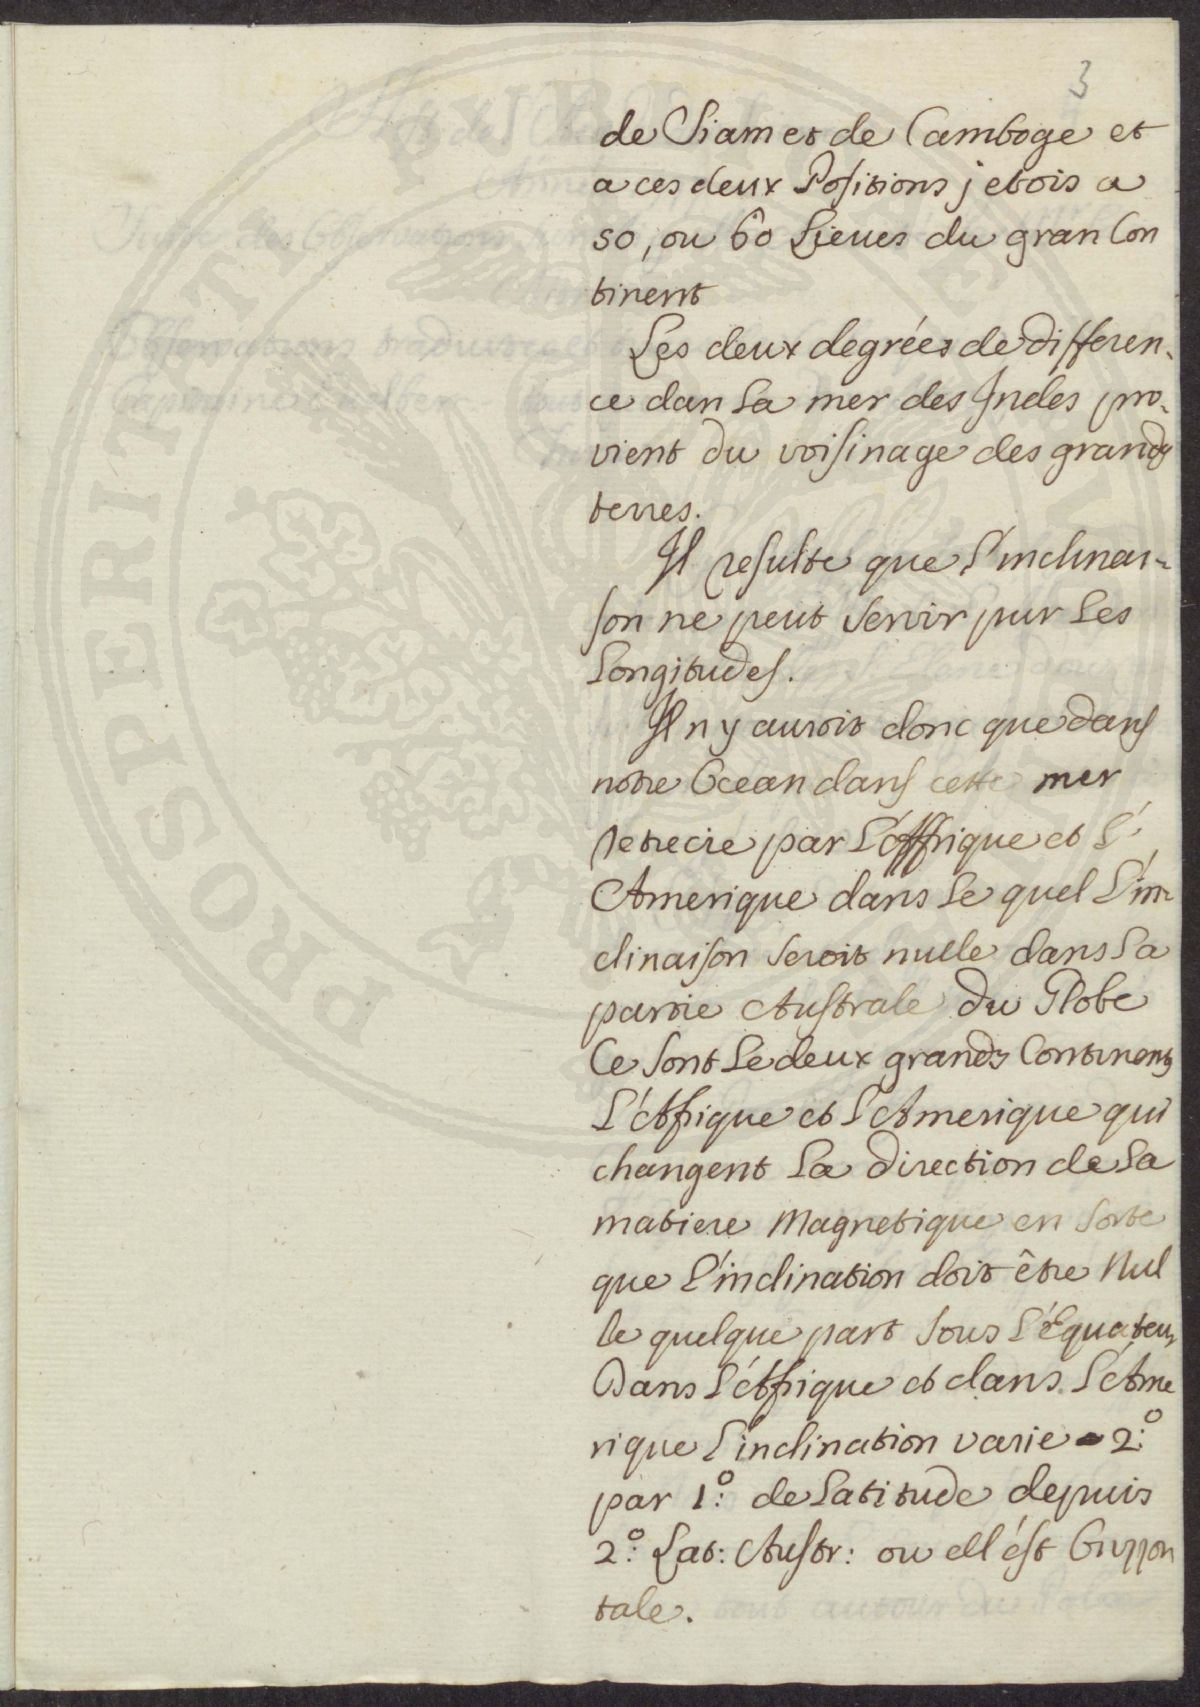 3
de Siam et de Camboge et
a ces deux Positions j etois a
50, ou 60 Lieues du gran Con
tinent
Les deux degrées de differen-
ce dan La mer des Indes pro-
vient du voisinage des grands
terres.
Il resulte que L'inclinai-
son ne peut servir pur Les
Longitudes.
Il n y auroit donc que dans
notre Ocean dans cette mer
retrecie par L'Affrique et L'
Amerique dans Le quel L'in-
clinaison seroit nulle dans La
partie Australe du Globe
Ce sont Le deux grands Continens
L'Afrique et L'Amerique qui
changent La direction de La
matiere Magnetique en sorte
que L'inclination doit être Nul
le quelque part sous L'Equateur
Dans L'Afrique et dans L'Ame
rique L'inclination varie 2.°
par 1.° de Latitude depuis
2.° Lat: Austr: ou ell'ést Orizzon
tale.
PUBLICAE PROSPERITATI